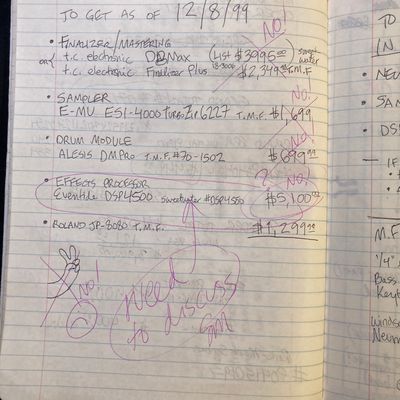 TO GET AS OF 12/8/99
No!
• FINALIZER/MASTERING
t.c. electronic DBMax (List $3995.00 sweet water
t.c. electronic Finalizer Plus $2,349.00 T.M.F
No!
• SAMPLER
E-MU ESI-4000 TURBO ZIP 6227 T.M.F. $1,699
No!
• DRUM MODULE
ALESIS DM PRO T.M.F. #70-1502 $699.00
? No!
• EFFECTS PROCESSOR
Eventide DSP4500 sweetwater #DSP4550 $5,100.00
• ROLAND JP-8080 T.M.F. $1,299.00
No!
need
to discuss
TO
IN
• NEU
• SAM
• DSP
— IF
M.F.
"1/4"
Bass
Key
Windso
Neum